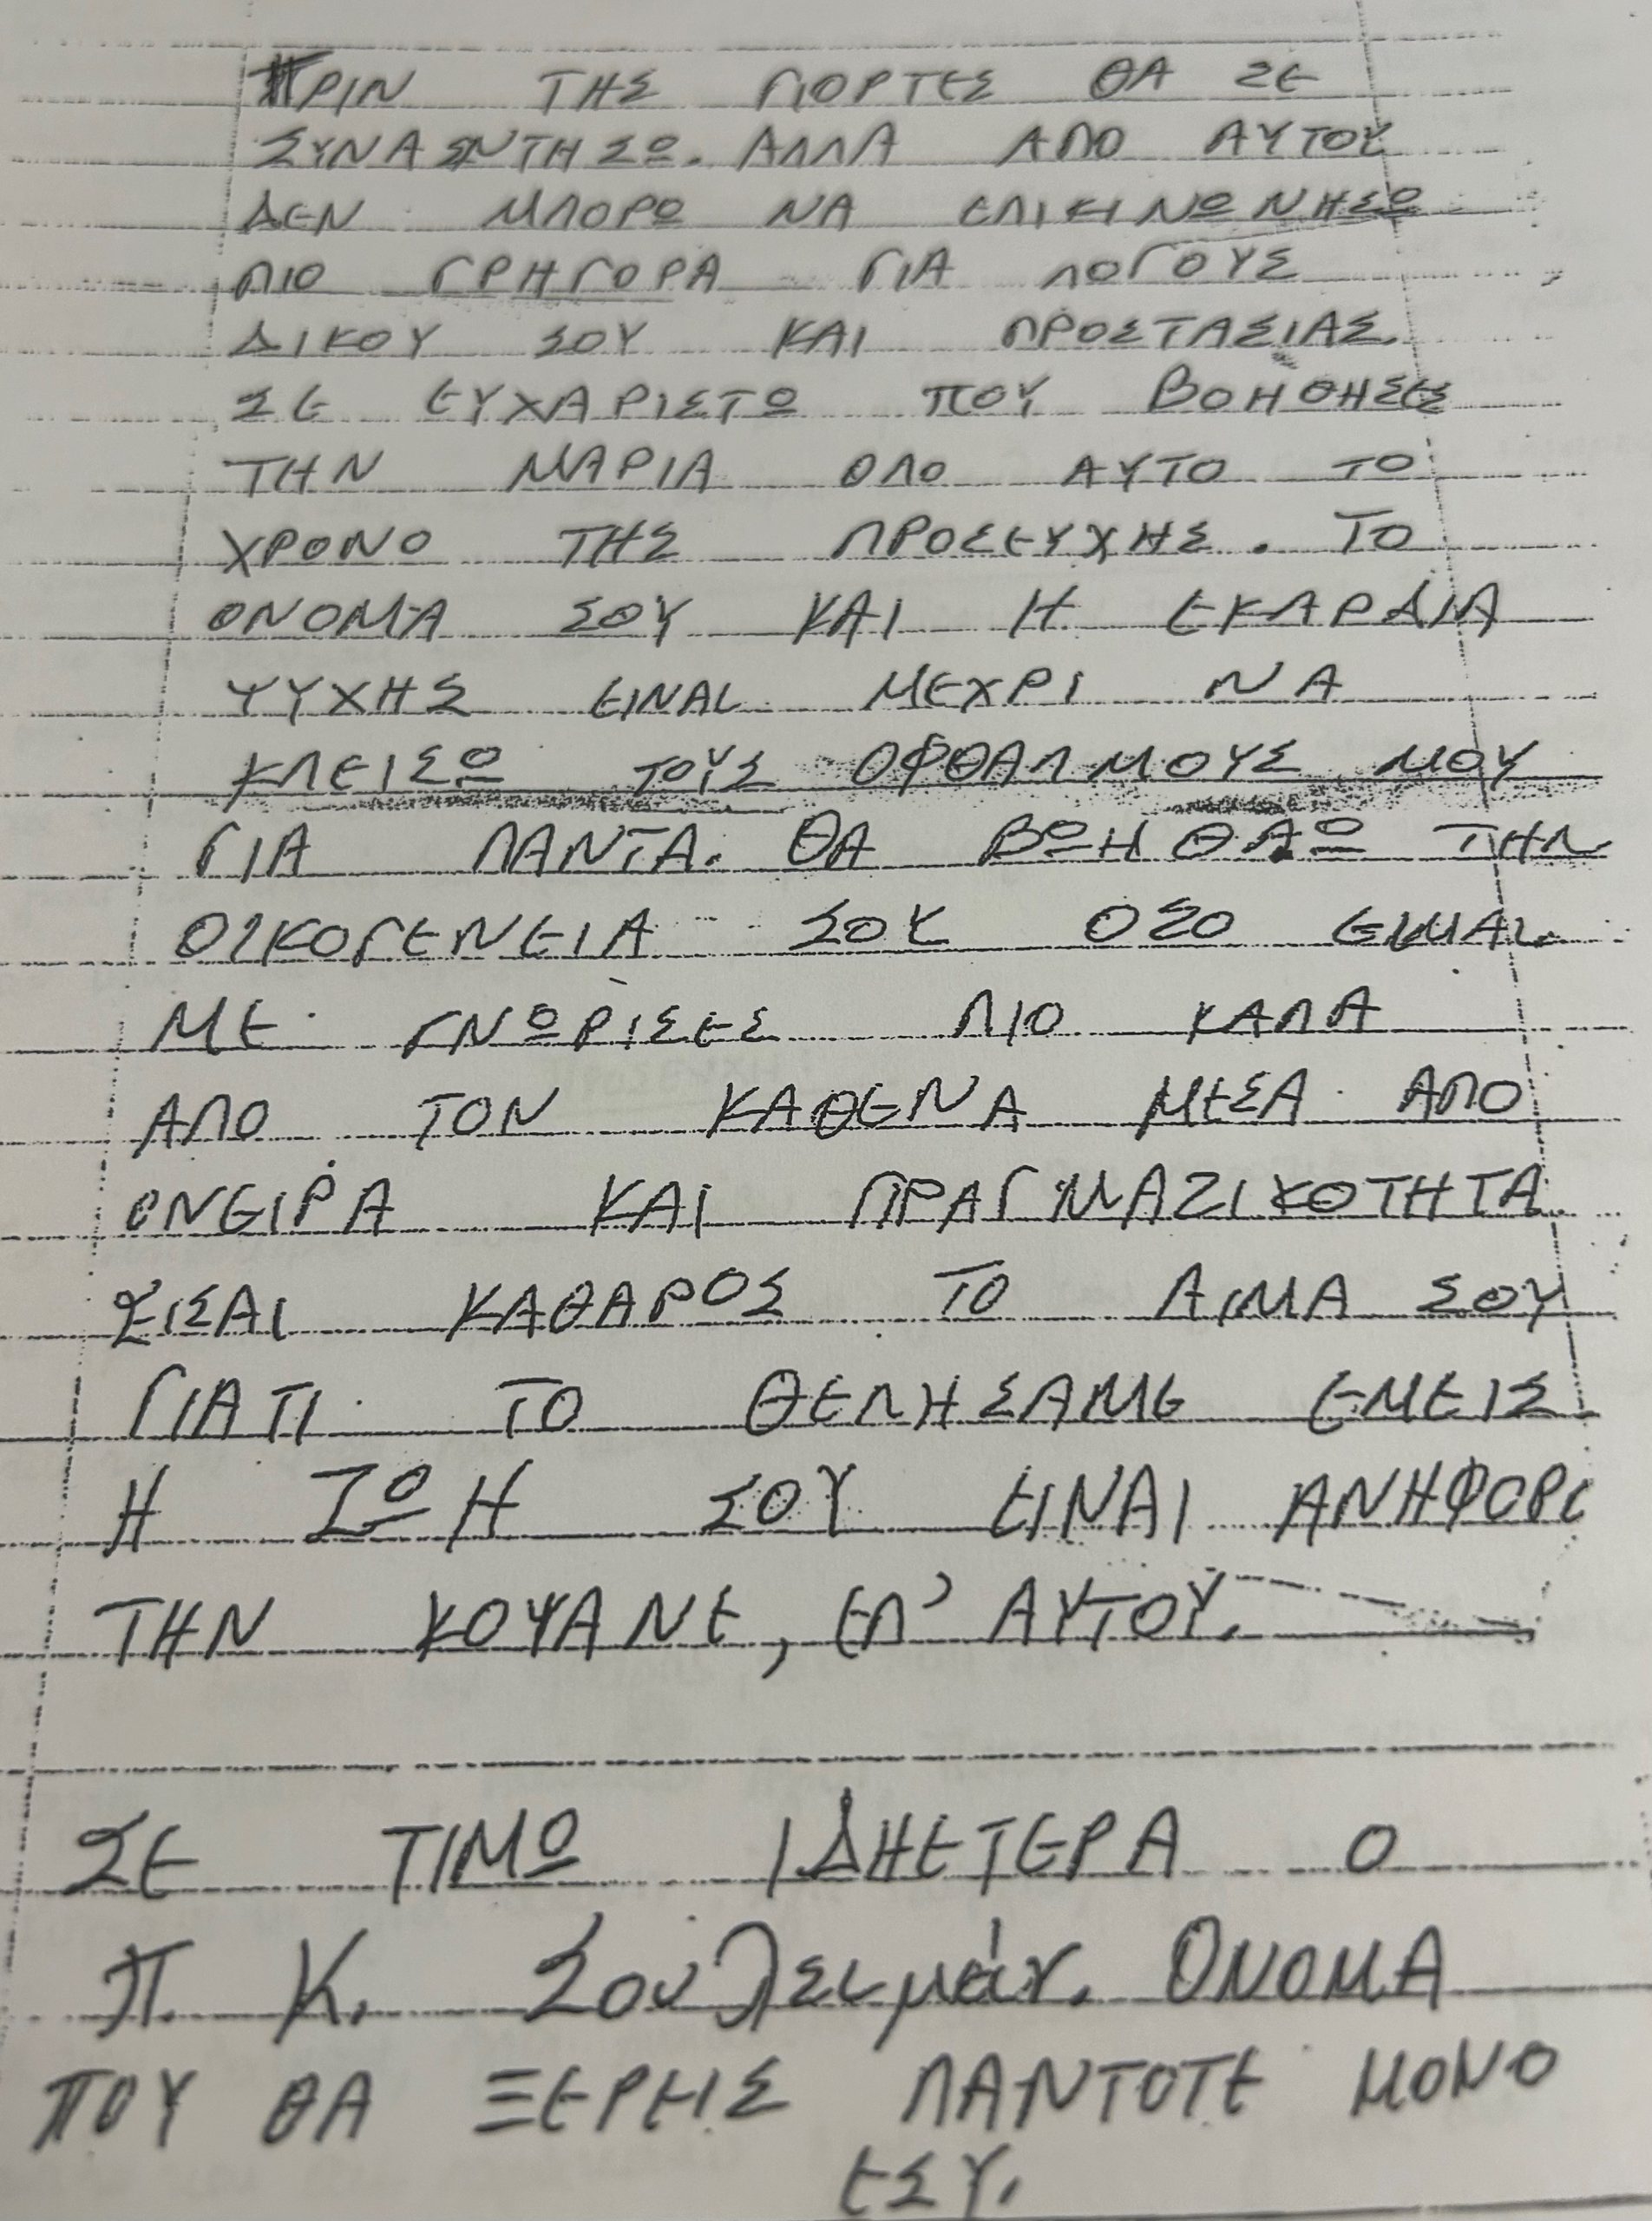 ΠΡΙΝ ΤΗΣ ΓΙΟΡΤΕΣ ΘΑ ΣΕ
ΣΥΝΑΝΤΗΣΩ. ΑΛΛΑ ΑΠΟ ΑΥΤΟΥ
ΔΕΝ ΜΠΟΡΩ ΝΑ ΕΠΙΚΙΝΩΝΗΣΩ
ΠΙΟ ΓΡΗΓΟΡΑ ΓΙΑ ΛΟΓΟΥΣ
ΔΙΚΟΥ ΣΟΥ ΚΑΙ ΠΡΟΣΤΑΣΙΑΣ.
ΣΕ ΕΥΧΑΡΙΣΤΩ ΠΟΥ ΒΟΗΘΗΣΕΣ
ΤΗΝ ΜΑΡΙΑ ΟΛΟ ΑΥΤΟ ΤΟ
ΧΡΟΝΟ ΤΗΣ ΠΡΟΣΕΥΧΗΣ. ΤΟ
ΟΝΟΜΑ ΣΟΥ ΚΑΙ Η ΕΚΑΡΔΙΑ
ΨΥΧΗΣ ΕΙΝΑΙ ΜΕΧΡΙ ΝΑ
ΚΛΕΙΣΩ ΤΟΥΣ ΟΦΘΑΛΜΟΥΣ ΜΟΥ
ΓΙΑ ΠΑΝΤΑ. ΘΑ ΒΩΗΘΑΩ ΤΗΝ
ΟΙΚΟΓΕΝΕΙΑ ΣΟΥ ΟΣΟ ΕΙΜΑΙ.
ΜΕ ΓΝΩΡΙΣΕΣ ΠΙΟ ΚΑΛΑ
ΑΠΟ ΤΟΝ ΚΑΘΕΝΑ ΜΕΣΑ ΑΠΟ
ΟΝΕΙΡΑ ΚΑΙ ΠΡΑΓΜΑΖΙΚΟΤΗΤΑ
ΕΙΣΑΙ ΚΑΘΑΡΟΣ ΤΟ ΑΙΜΑ ΣΟΥ
ΓΙΑΤΙ ΤΟ ΘΕΛΗΣΑΜΕ ΕΜΕΙΣ
Η ΖΩΗ ΣΟΥ ΕΙΝΑΙ
ΤΗΝ ΚΟΨΑΝΕ, ΕΠ' ΑΥΤΟΥ.
ΣΕ ΤΙΜΩ ΙΔΗΕΤΕΡΑ Ο
Π. Κ. Σουλειμάν. ΟΝΟΜΑ
ΠΟΥ ΘΑ ΞΕΡΕΙΣ ΠΑΝΤΟΤΕ ΜΟΝΟ
ΕΣΥ.